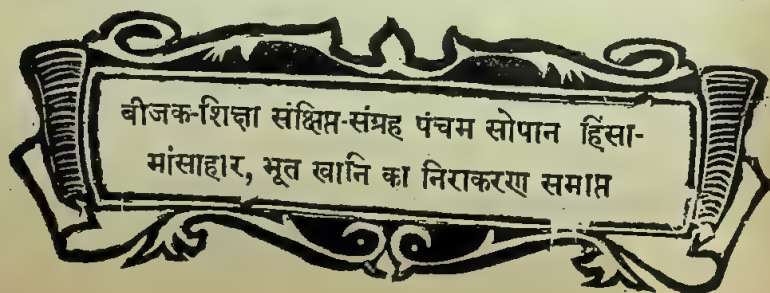 बीजक-शिक्षा संक्षिप्त-संग्रह पंचम सोपान हिंसा-
मांसाहार, भूत खानि का निराकरण समाप्त